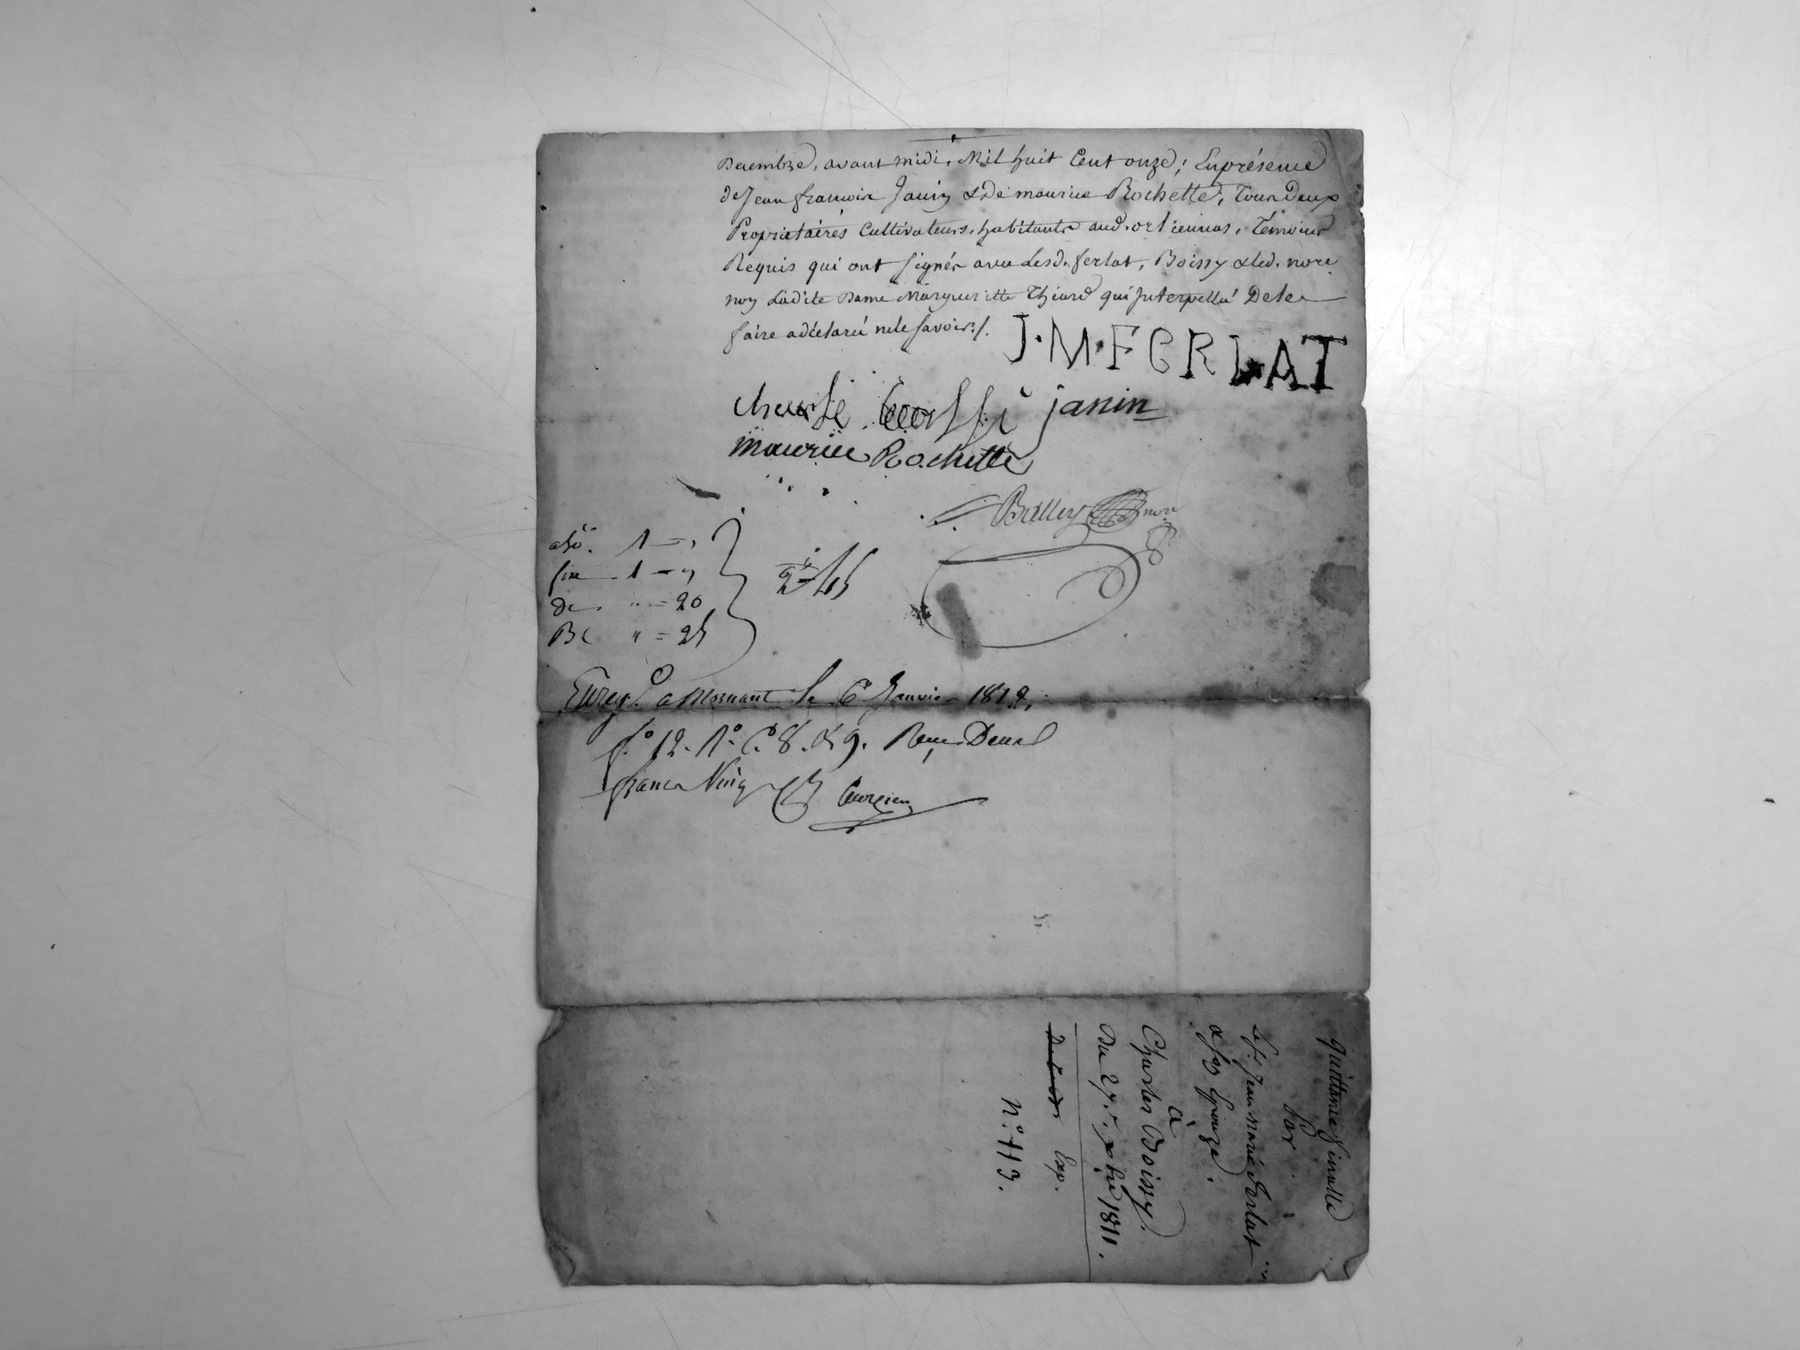 Decembre, avant midi, Mil huit Cent onze; En présence
de Jean françois Janin & De maurice Rochette, Tous Deux
Propriétaires Cultivateurs, habitants aud. orliennas, Témoins
Requis qui ont signés avec lesd. ferlat, Boissy & led. nore
non Ladite Dame Margueritte Thiard qui Interpellée De le
faire a déclaré ne le savoir ./.
J. M. FERLAT
charle boissi janin
maurice Rochette
Balley nore
1 = "
fixe 1 = "
de " = 20
" = 25
2 = 45
Enreg. a Mornant le 6 Janvier 1812,
f.o 12. R.o C. 8. & 9. Reçu Deux
francs Vingt
Quittance finalle
Par
le s. Jean Marie Ferlat
a son Epouze.
à
Charles Boissy.
Du 27. Xbre 1811.
Exp.
N.o 113.